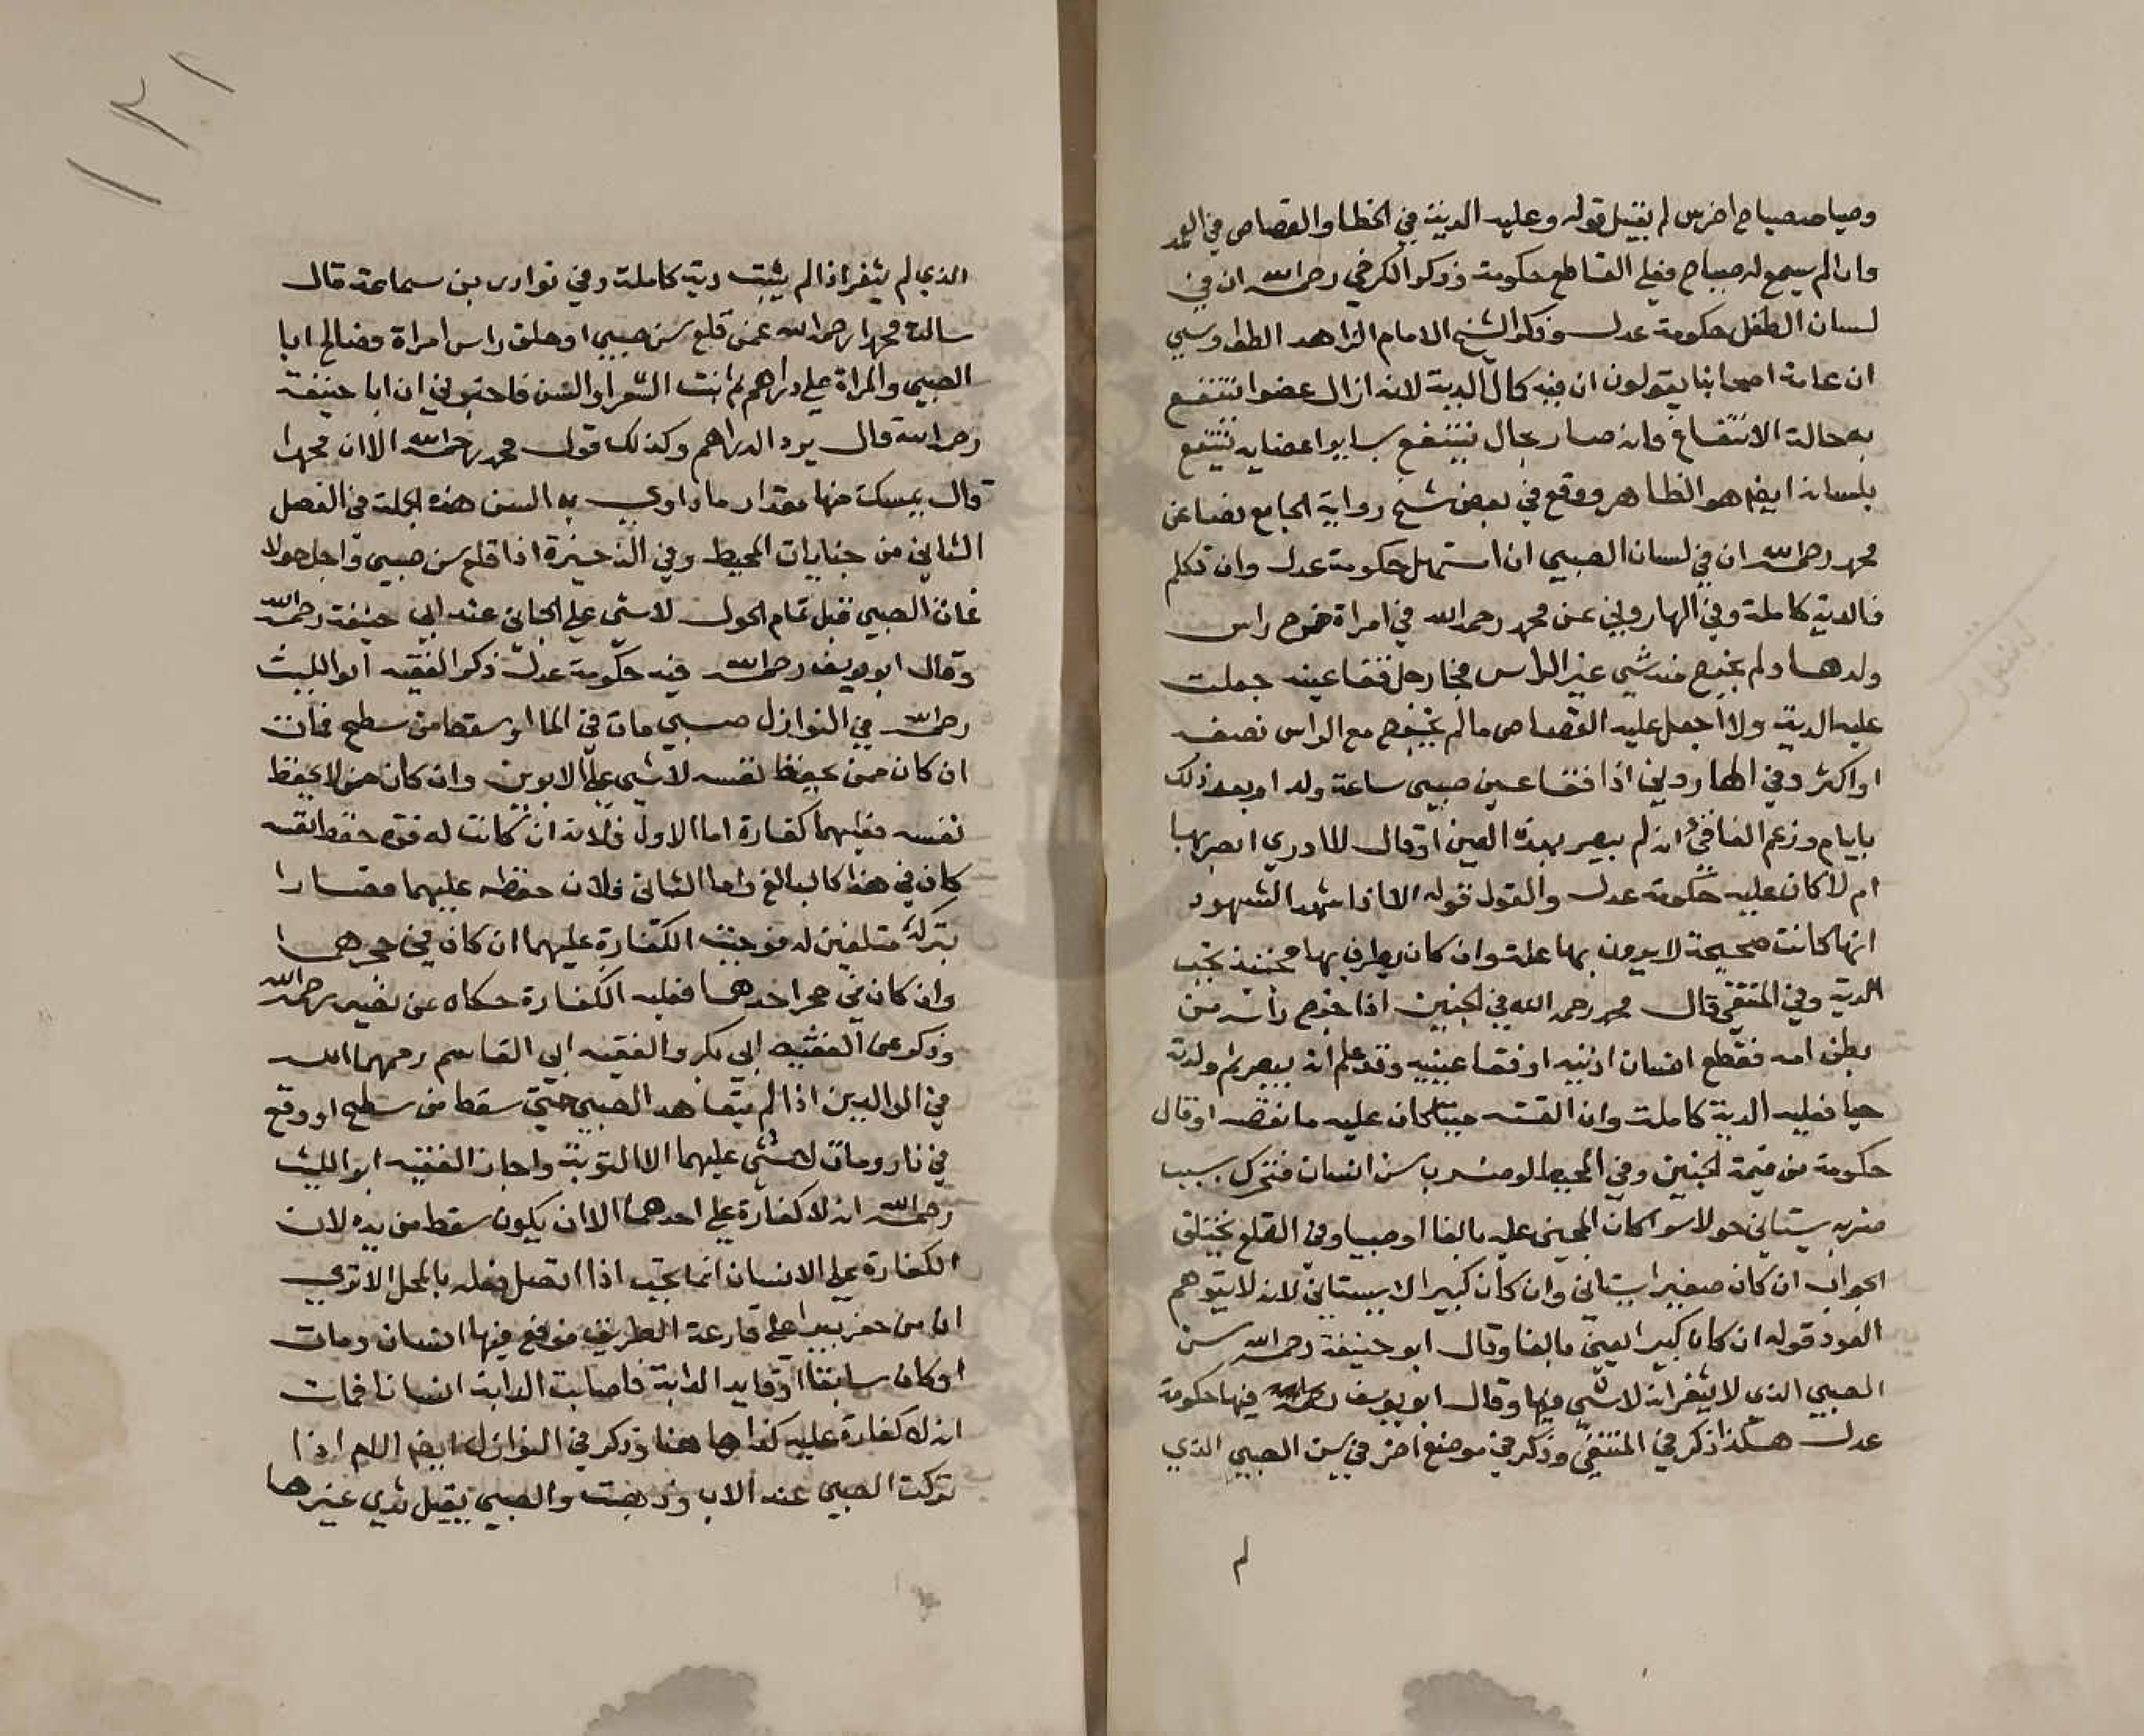 وصياحه صياح اخرس لم يقبل قوله وعليه الدية في الخطا والقصاص في العمد
وان لم يسمع له صياح فعلى القاطع حكومة وذكر الكرخي رحمه الله ان في
لسان الطفل حكومة عدل وذكر الشيخ الامام الزاهد الطواويسي
ان عامة اصحابنا يقولون ان فيه كمال الدية لانه ازال عضوا ينتفع
به حالة الانتفاع فانه صار بحال ينتفع بساير اعضايه ينتفع
بلسانه ايضا هو الظاهر ووقع في بعض نسخ رواية الجامع نصا عن
محمد رحمه الله ان في لسان الصبي ان استهل حكومة عدل وان تكلم
فالدية كاملة وفي الهاروني عن محمد رحمه الله في امراة خرج راس
ولدها ولم يخرج منه شي غير الراس فجا رجل ففقا عينه جعلت
عليه الدية ولا اجعل عليه القصاص ما لم يخرج مع الراس نصفه
او اكثر وفي الهاروني اذا فقا عين صبي ساعة ولد او بعد ذلك
بايام وزعم الفاقي انه لم يبصر بهذه العين او قال لا ادري ابصر بها
ام لا كان عليه حكومة عدل والقول قوله الا اذا شهد الشهود
انها كانت صحيحة لا يرون بها علة وان كان يطرف بها فحينيذ تجب
الدية وفي المنتقى قال محمد رحمه الله في الجنين اذا خرج راسه من
بطن امه فقطع انسان اذنيه او فقا عينيه وقد علم انه يبصر ثم ولدته
حيا فعليه الدية كاملة وان القته ميتا كان عليه ما نقصه او قال
حكومة من قيمة الجنين وفي المحيط لو ضرب سن انسان فتحرك بسبب
ضربه يستاني حولا سوا كان المجني عليه بالغا او صبيا وفي القلع يختلف
الجواب ان كان صغيرا يستاني وان كان كبيرا لا يستاني لانه لا يتوهم
العود قوله ان كان كبيرا يعني بالغا وقال ابو حنيفة رحمه الله سن
الصبي الذي لا يثغر انه لا شي فيها وقال ابو يوسف رحمه الله فيها حكومة
عدل هكذا ذكر في المنتقى وذكر في موضع اخر في سن الصبي الذي
لم
الذي لم يثغر اذا لم يثبت دية كاملة وفي نوادر بن سماعة قال
سالت محمدا رحمه الله عمن قلع سن صبي او حلق راس امراة فصالح ابا
الصبي والمراة على دراهم ثم نبت الشعر او السن فاخبرني ان ابا حنيفة
رحمه الله قال يرد الدراهم وكذلك قول محمد رحمه الله الا ان محمدا
قال يمسك منها مقدار ما داوي به السن هذه الجملة في الفصل
الثاني من جنايات المحيط وفي الذخيرة اذا قلع سن صبي واجل حولا
فمات الصبي قبل تمام الحول لا شي على الجاني عند ابي حنيفة رحمه الله
وقال ابو يوسف رحمه الله فيه حكومة عدل ذكر الفقيه ابو الليث
رحمه الله في النوازل صبي مات في الما او سقط من سطح فمات
ان كان ممن يحفظ نفسه لا شي على الابوين وان كان ممن لا يحفظ
نفسه فعليهما كفارة اما الاول فلانه ان كانت له قوة حفظ نفسه
كان في هذا كالبالغ واما الثاني فلان حفظه عليهما فصارا
بتركه متلفين له فوجبت الكفارة عليهما ان كان في حجرهما
وان كان في حجر احدهما فعليه الكفارة حكاه عن نصير رحمه الله
وذكر عن الفقيه ابي بكر والفقيه ابي القاسم رحمهما الله
في الوالدين اذا لم يتعاهد الصبي حتى سقط من سطح او وقع
في نار ومات لا شي عليهما الا التوبة واختار الفقيه ابو الليث
رحمه الله انه لا كفارة على احدهما الا ان يكون سقط من يده لان
الكفارة على الانسان انما تجب اذا اتصل فعله بالمحل الا ترى
ان من حفر بيرا على قارعة الطريق فوقع فيها انسان ومات
او كان سابقا او قايد الدابة فاصابت الدابة انسانا فمات
انه لا كفارة عليه كذا هاهنا وذكر في النوازل ايضا الام اذا
تركت الصبي عند الاب وذهبت والصبي يقبل ثدي غيرها
١٣١